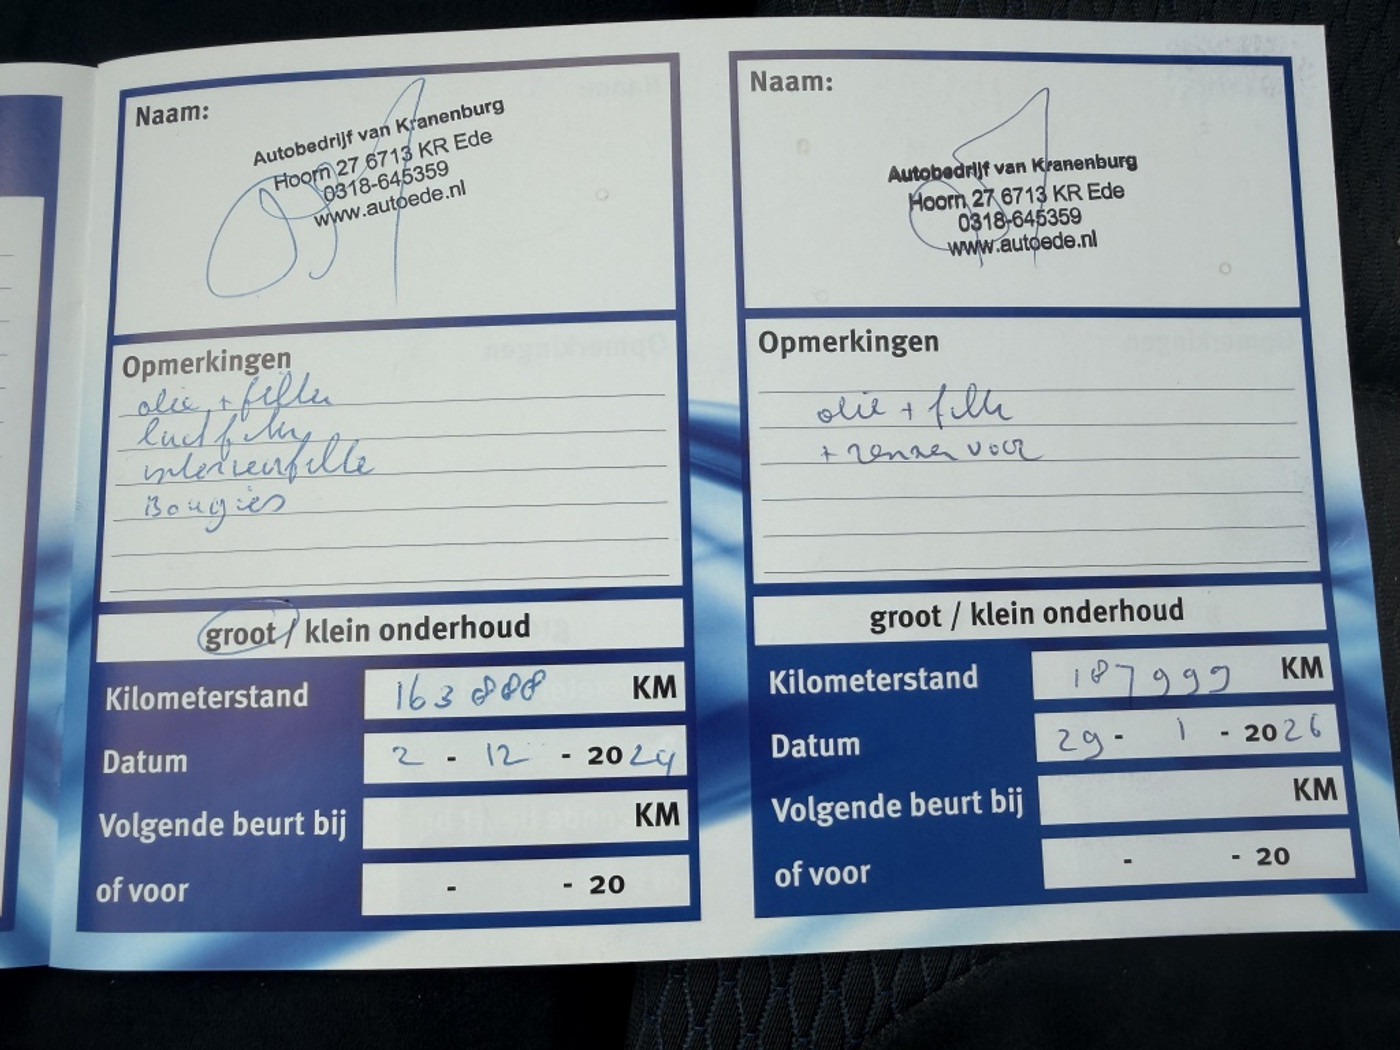 Naam:
Autobedrijf van Kranenburg
Hoorn 27 6713 KR Ede
0318-645359
www.autoede.nl
Opmerkingen
olie + filter
luchtfilter
interieurfilter
Bougies
groot / klein onderhoud
Kilometerstand 163 888 KM
Datum 2 - 12 - 2024
Volgende beurt bij KM
of voor - - 20
Naam:
Autobedrijf van Kranenburg
Hoorn 27 6713 KR Ede
0318-645359
www.autoede.nl
Opmerkingen
olie + filter
+ remmen voor
groot / klein onderhoud
Kilometerstand 187999 KM
Datum 29 - 1 - 2026
Volgende beurt bij KM
of voor - - 20